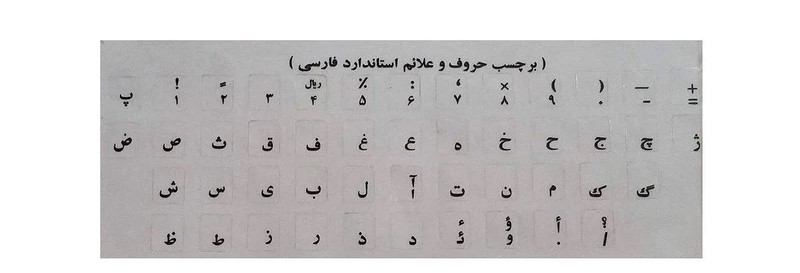 ( برچسب حروف و علائم استاندارد فارسی )
پ ! ۱ ۲ ۳ ریال ۴ ٪ ۵ : ۶ ، ۷ × ۸ ( ۹ ) ۰ — - + =
ض ص ث ق ف غ ع ه خ ح ج چ ژ
ش س ی ب ل آ ا ت ن م ک گ
ظ ط ز ر ذ د ئ ء ؤ و أ . ؟ /